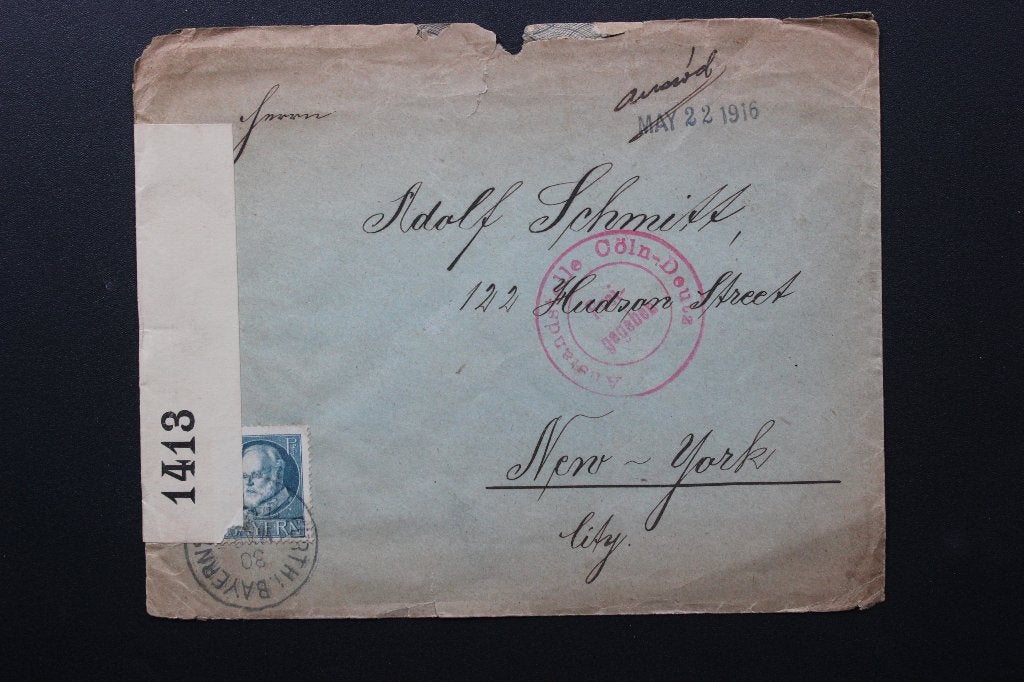 Herrn
Answ'd
MAY 22 1916
Adolf Schmitt,
122 Hudson Street
Auslandstelle Cöln-Deutz
gegeben
New-York
City.
1413
BAYERN
RTH I. BAYERN
30